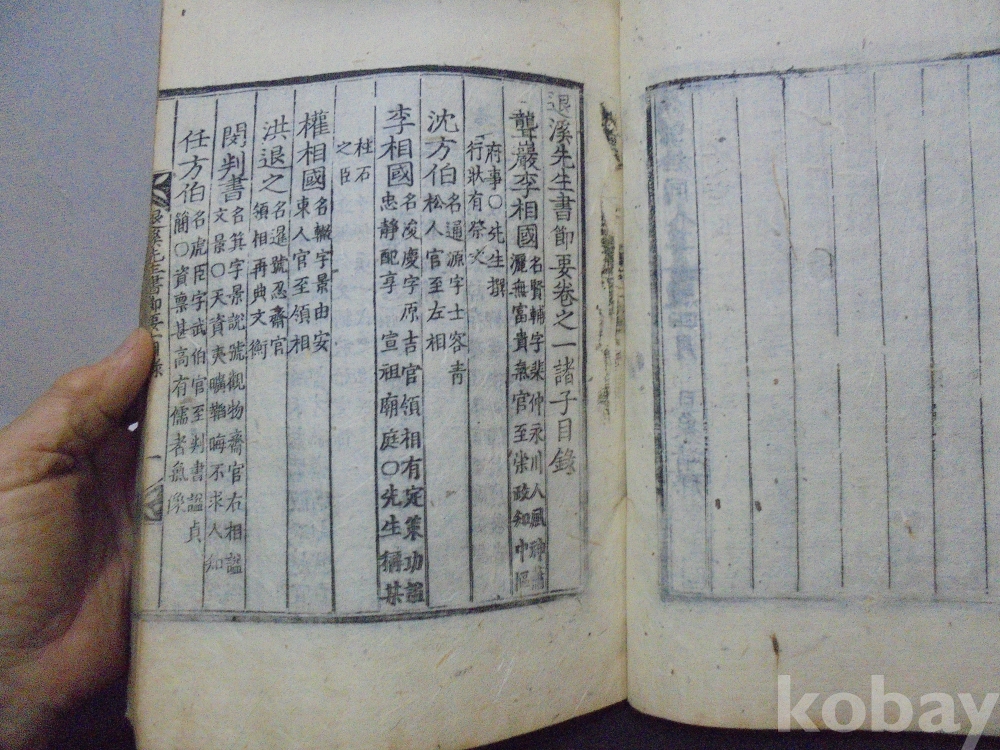 退溪先生書節要卷之一諸子目錄
聾巖李相國 名賢輔字棐仲永川人風神
灑無富貴氣官至崇政知中樞
府事○先生撰
行狀有祭文
沈方伯 名逋源字士容靑
松人官至左相
李相國 名浚慶字原吉官領相有定策功謚
忠靜配享 宣祖廟庭○先生稱某
柱石
之臣
權相國 名轍字景由安
東人官至領相
洪退之 名暹號忍齋官
領相再典文衡
閔判書 名箕字景說號觀物齋官右相謚
文景○天資夷曠韜晦不求人知
任方伯 名虎臣字武伯官至判書謚貞
簡○資禀甚高有儒者氣像
退溪先生書節要 目錄 一
kobay